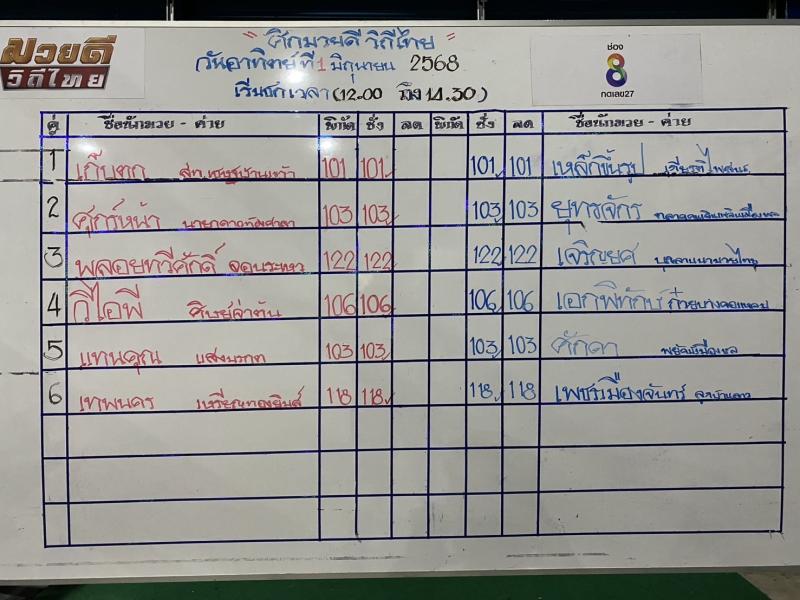 มวยดี
วิถีไทย
" ศึกมวยดี วิถีไทย "
วันอาทิตย์ ที่ 1 มิถุนายน 2568
เริ่มชกเวลา (12.00 ถึง 14.30)
ช่อง
8
กดเลข27
คู่ ชื่อนักมวย - ค่าย พิกัด ชั่ง ลด พิกัด ชั่ง ลด ชื่อนักมวย - ค่าย
1 เก็บตก 101 101 101 101 เหล็กขึ้นรูป
2 ศุกร์หน้า 103 103 103 103 ยุทธจักร
3 พลอยทวีศักดิ์ จอนระหว 122 122 122 122 เจริญยศ
4 วีไอพี ศิษย์จ่าตั้น 106 106 106 106 เอกพิทักษ์
5 แทนคุณ แสงมรกต 103 103 103 103 ศักดา
6 เทพนคร เหรียญทองยิมส์ 118 118 118 118 เพชรเมืองจันทร์